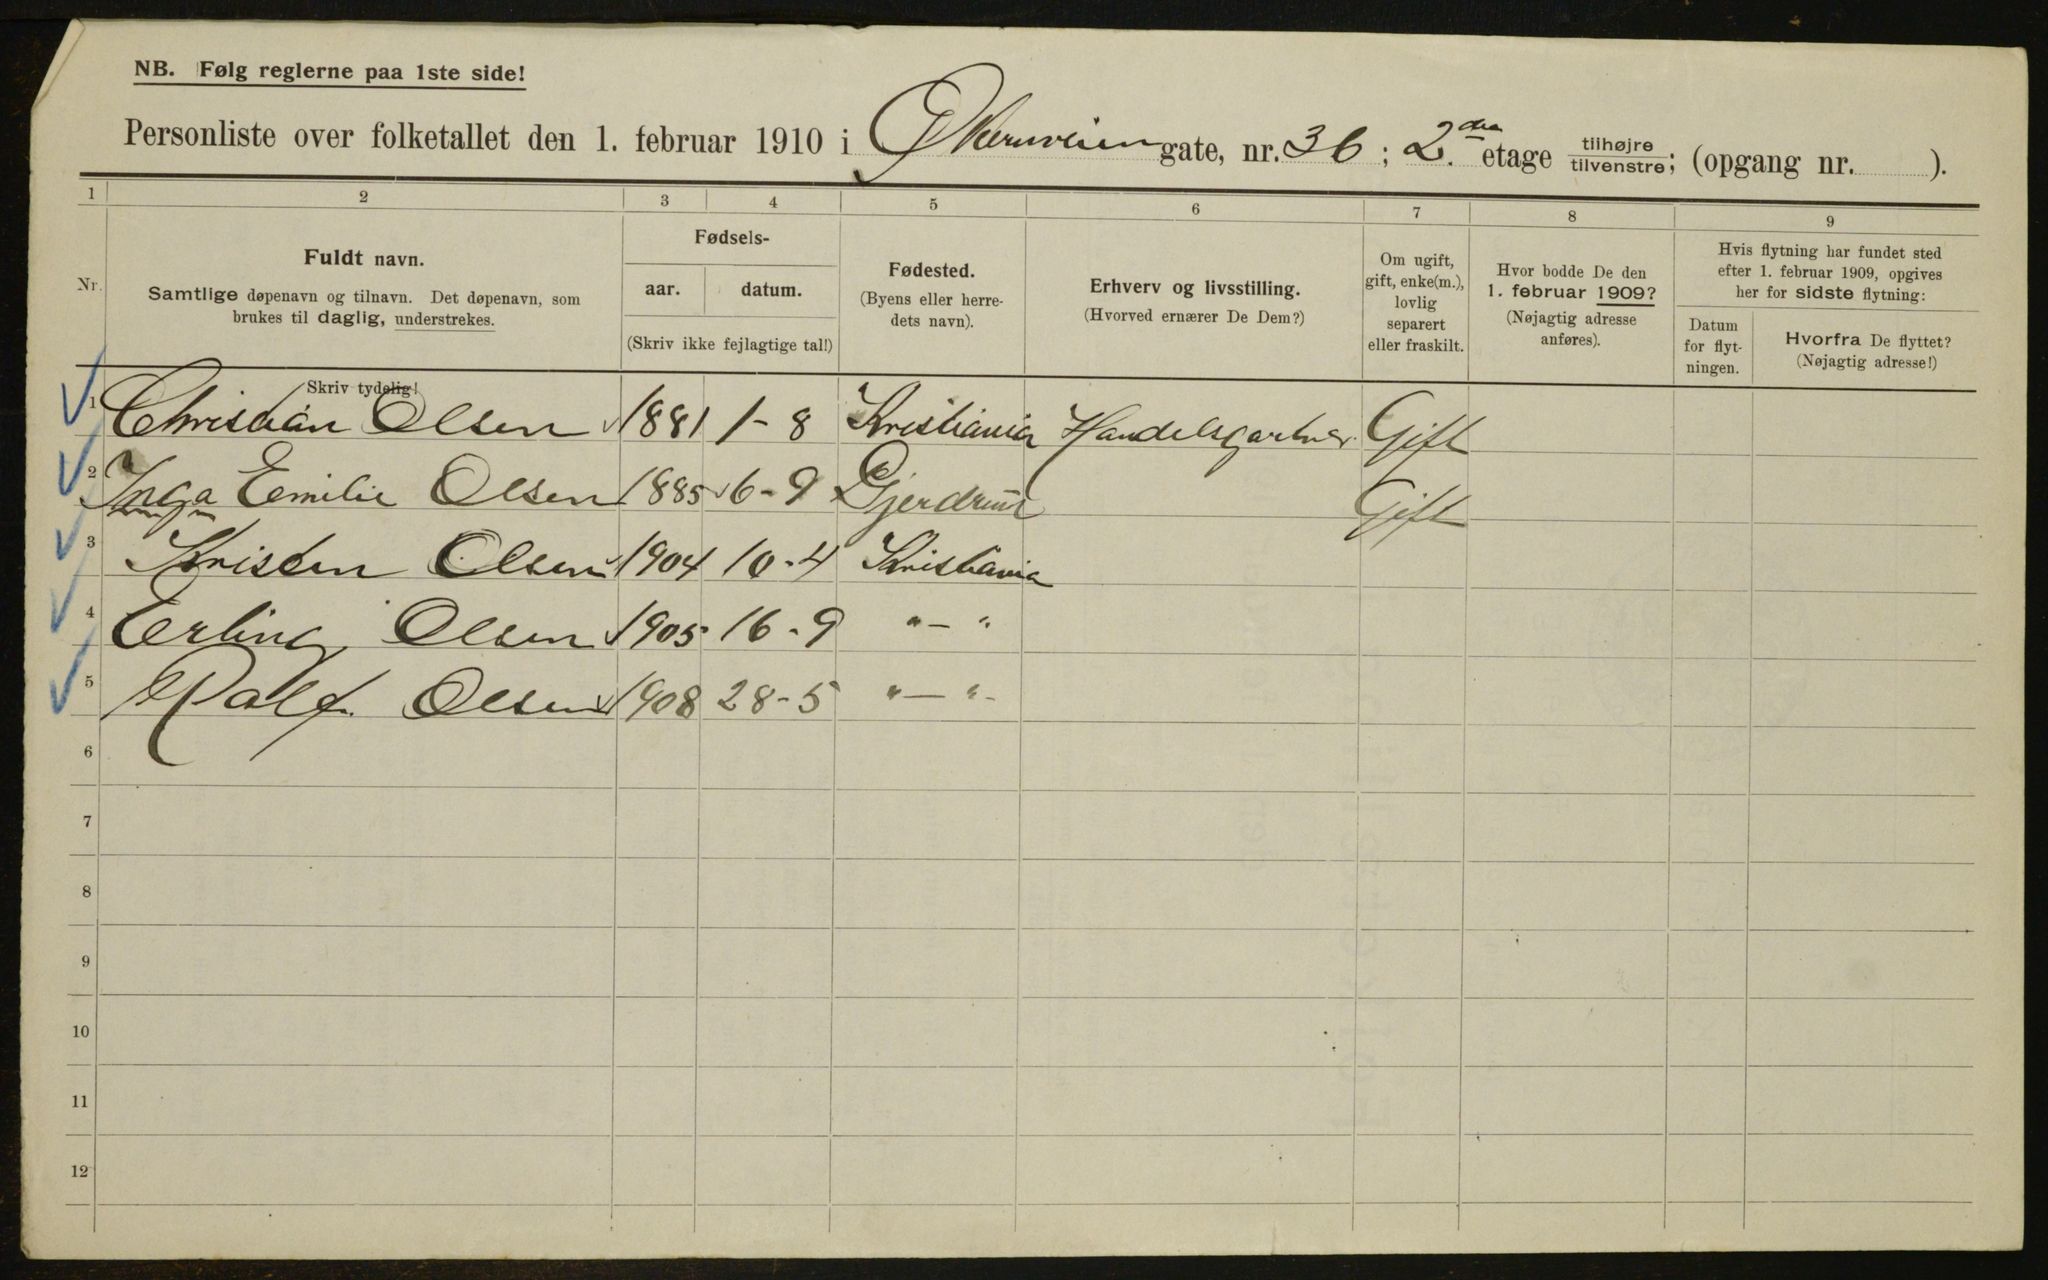 NB. Følg reglerne paa 1ste side!
Personliste over folketallet den 1. februar 1910 i Økernveien gate, nr. 36; 2.den etage tilhøjre/tilvenstre; (opgang nr. ).
1 2 3 4 5 6 7 8 9
Nr.
Fuldt navn.
Samtlige døpenavn og tilnavn. Det døpenavn, som
brukes til daglig, understrekes.
Skriv tydelig!
Fødsels-
aar. datum.
(Skriv ikke fejlagtige tal!)
Fødested.
(Byens eller herre-
dets navn).
Erhverv og livsstilling.
(Hvorved ernærer De Dem?)
Om ugift,
gift, enke(m.),
lovlig
separert
eller fraskilt.
Hvor bodde De den
1. februar 1909?
(Nøjagtig adresse
anføres).
Hvis flytning har fundet sted
efter 1. februar 1909, opgives
her for sidste flytning:
Datum
for flyt-
ningen.
Hvorfra De flyttet?
(Nøjagtig adresse!)
1 Christian Olsen 1881 1-8 Kristiania Handelsgartner Gift
2 Inga Emilie Olsen 1885 6-9 Gjerdrum Gift
3 Kristen Olsen 1904 10-4 Kristiania
4 Erling Olsen 1905 16-9 "—"
5 Ralf Olsen 1908 28-5 "—"
6
7
8
9
10
11
12